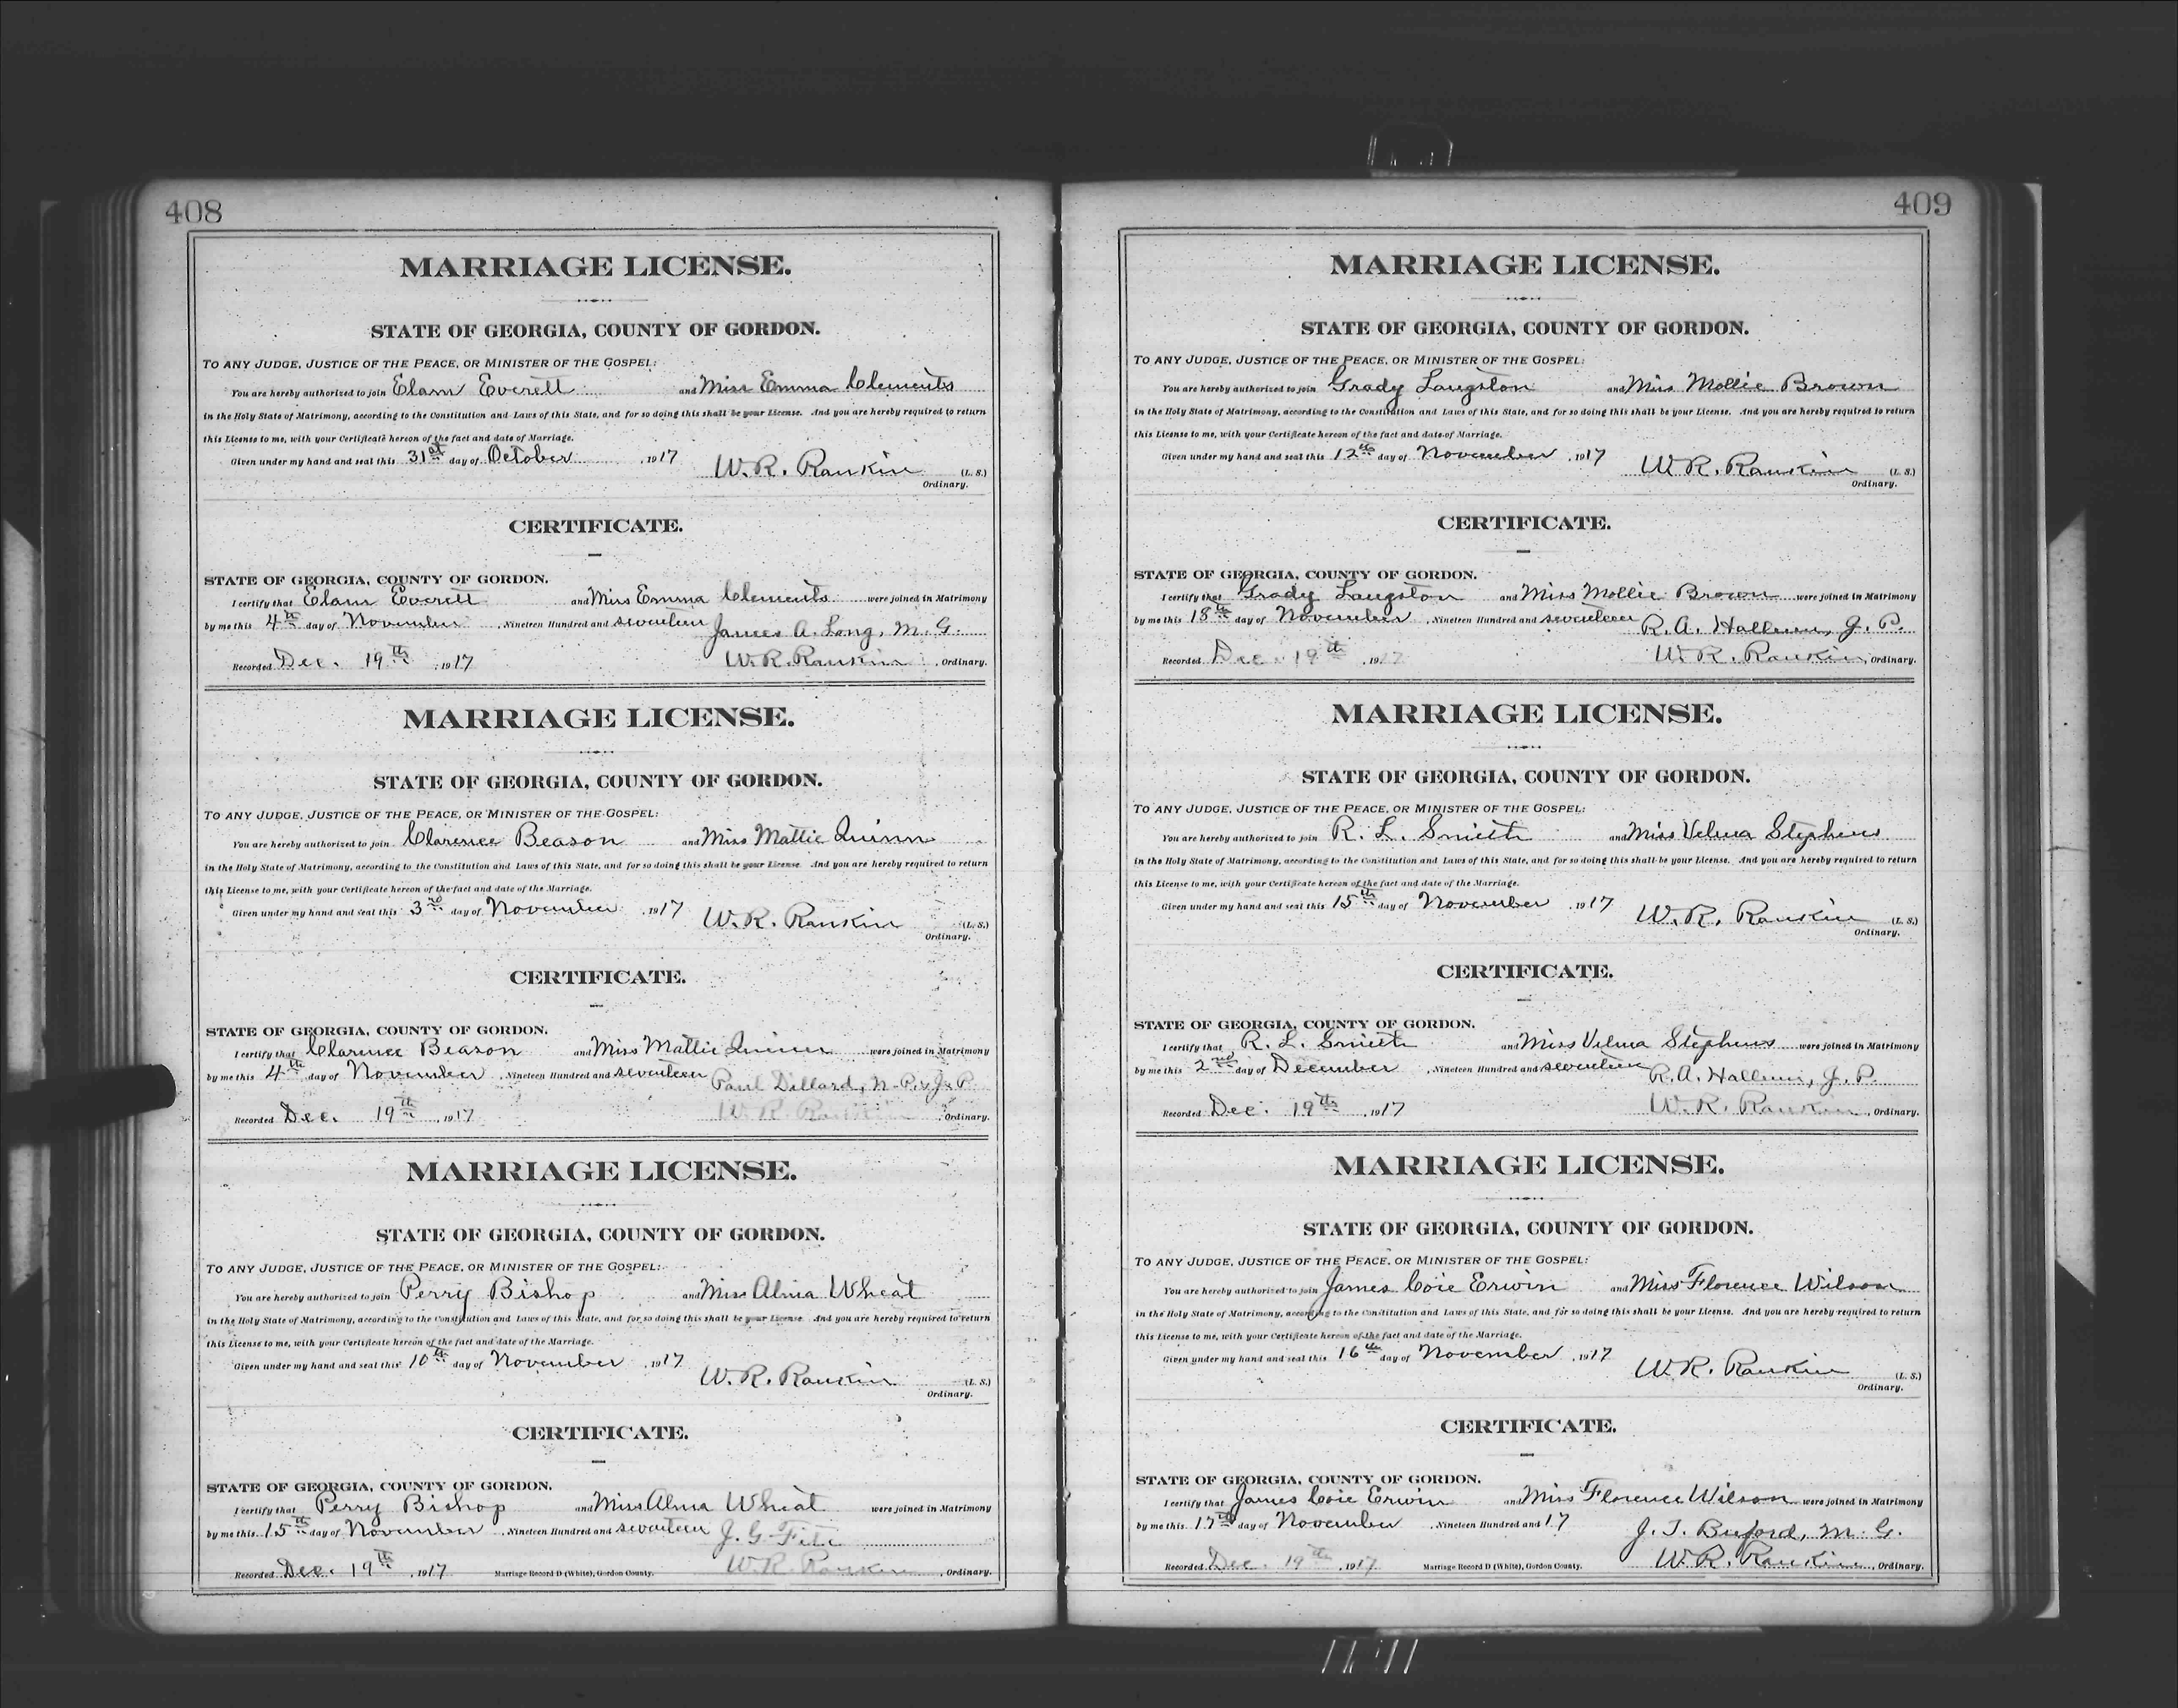 408
MARRIAGE LICENSE.
STATE OF GEORGIA, COUNTY OF GORDON.
TO ANY JUDGE, JUSTICE OF THE PEACE, OR MINISTER OF THE GOSPEL:
You are hereby authorized to join Elam Everett and Miss Emma Clements
in the Holy State of Matrimony, according to the Constitution and Laws of this State, and for so doing this shall be your License. And you are hereby required to return
this License to me, with your Certificate hereon of the fact and date of Marriage.
Given under my hand and seal this 31st day of October, 1917 W. R. Rankin (L. S.)
Ordinary.
CERTIFICATE.
STATE OF GEORGIA, COUNTY OF GORDON.
I certify that Elam Everett and Miss Emma Clements were joined in Matrimony
by me this 4th day of November, Nineteen Hundred and seventeen James A. Long, M. G.
Recorded Dec. 19th, 1917 W. R. Rankin, Ordinary.
MARRIAGE LICENSE.
STATE OF GEORGIA, COUNTY OF GORDON.
TO ANY JUDGE, JUSTICE OF THE PEACE, OR MINISTER OF THE GOSPEL:
You are hereby authorized to join Clarence Beason and Miss Mattie Quinn
in the Holy State of Matrimony, according to the Constitution and Laws of this State, and for so doing this shall be your License. And you are hereby required to return
this License to me, with your Certificate hereon of the fact and date of the Marriage.
Given under my hand and seal this 3rd day of November, 1917 W. R. Rankin (L. S.)
Ordinary.
CERTIFICATE.
STATE OF GEORGIA, COUNTY OF GORDON.
I certify that Clarence Beason and Miss Mattie Quinn were joined in Matrimony
by me this 4th day of November, Nineteen Hundred and seventeen Paul Dillard, N. P. & J. P.
Recorded Dec. 19th, 1917 W. R. Rankin, Ordinary.
MARRIAGE LICENSE.
STATE OF GEORGIA, COUNTY OF GORDON.
TO ANY JUDGE, JUSTICE OF THE PEACE, OR MINISTER OF THE GOSPEL:
You are hereby authorized to join Perry Bishop and Miss Alma Wheat
in the Holy State of Matrimony, according to the Constitution and Laws of this State, and for so doing this shall be your License. And you are hereby required to return
this License to me, with your Certificate hereon of the fact and date of the Marriage.
Given under my hand and seal this 10th day of November, 1917 W. R. Rankin (L. S.)
Ordinary.
CERTIFICATE.
STATE OF GEORGIA, COUNTY OF GORDON.
I certify that Perry Bishop and Miss Alma Wheat were joined in Matrimony
by me this 15th day of November, Nineteen Hundred and seventeen J. G. Fite
Recorded Dec. 19th, 1917 Marriage Record D (White), Gordon County. W. R. Rankin, Ordinary.
409
MARRIAGE LICENSE.
STATE OF GEORGIA, COUNTY OF GORDON.
TO ANY JUDGE, JUSTICE OF THE PEACE, OR MINISTER OF THE GOSPEL:
You are hereby authorized to join Grady Langston and Miss Mollie Brown
in the Holy State of Matrimony, according to the Constitution and Laws of this State, and for so doing this shall be your License. And you are hereby required to return
this License to me, with your Certificate hereon of the fact and date of Marriage.
Given under my hand and seal this 12th day of November, 1917 W. R. Rankin (L. S.)
Ordinary.
CERTIFICATE.
STATE OF GEORGIA, COUNTY OF GORDON.
I certify that Grady Langston and Miss Mollie Brown were joined in Matrimony
by me this 18th day of November, Nineteen Hundred and seventeen R. A. Hallum, J. P.
Recorded Dec. 19th, 1917 W. R. Rankin, Ordinary.
MARRIAGE LICENSE.
STATE OF GEORGIA, COUNTY OF GORDON.
TO ANY JUDGE, JUSTICE OF THE PEACE, OR MINISTER OF THE GOSPEL:
You are hereby authorized to join R. L. Smith and Miss Velma Stephens
in the Holy State of Matrimony, according to the Constitution and Laws of this State, and for so doing this shall be your License. And you are hereby required to return
this License to me, with your Certificate hereon of the fact and date of the Marriage.
Given under my hand and seal this 15th day of November, 1917 W. R. Rankin (L. S.)
Ordinary.
CERTIFICATE.
STATE OF GEORGIA, COUNTY OF GORDON.
I certify that R. L. Smith and Miss Velma Stephens were joined in Matrimony
by me this 2nd day of December, Nineteen Hundred and seventeen R. A. Hallum, J. P.
Recorded Dec. 19th, 1917 W. R. Rankin, Ordinary.
MARRIAGE LICENSE.
STATE OF GEORGIA, COUNTY OF GORDON.
TO ANY JUDGE, JUSTICE OF THE PEACE, OR MINISTER OF THE GOSPEL:
You are hereby authorized to join James Coie Erwin and Miss Florence Wilson
in the Holy State of Matrimony, according to the Constitution and Laws of this State, and for so doing this shall be your License. And you are hereby required to return
this License to me, with your Certificate hereon of the fact and date of the Marriage.
Given under my hand and seal this 16th day of November, 1917 W. R. Rankin (L. S.)
Ordinary.
CERTIFICATE.
STATE OF GEORGIA, COUNTY OF GORDON.
I certify that James Coie Erwin and Miss Florence Wilson were joined in Matrimony
by me this 17th day of November, Nineteen Hundred and 17 J. T. Buford, M. G.
Recorded Dec. 19th, 1917 Marriage Record D (White), Gordon County. W. R. Rankin, Ordinary.